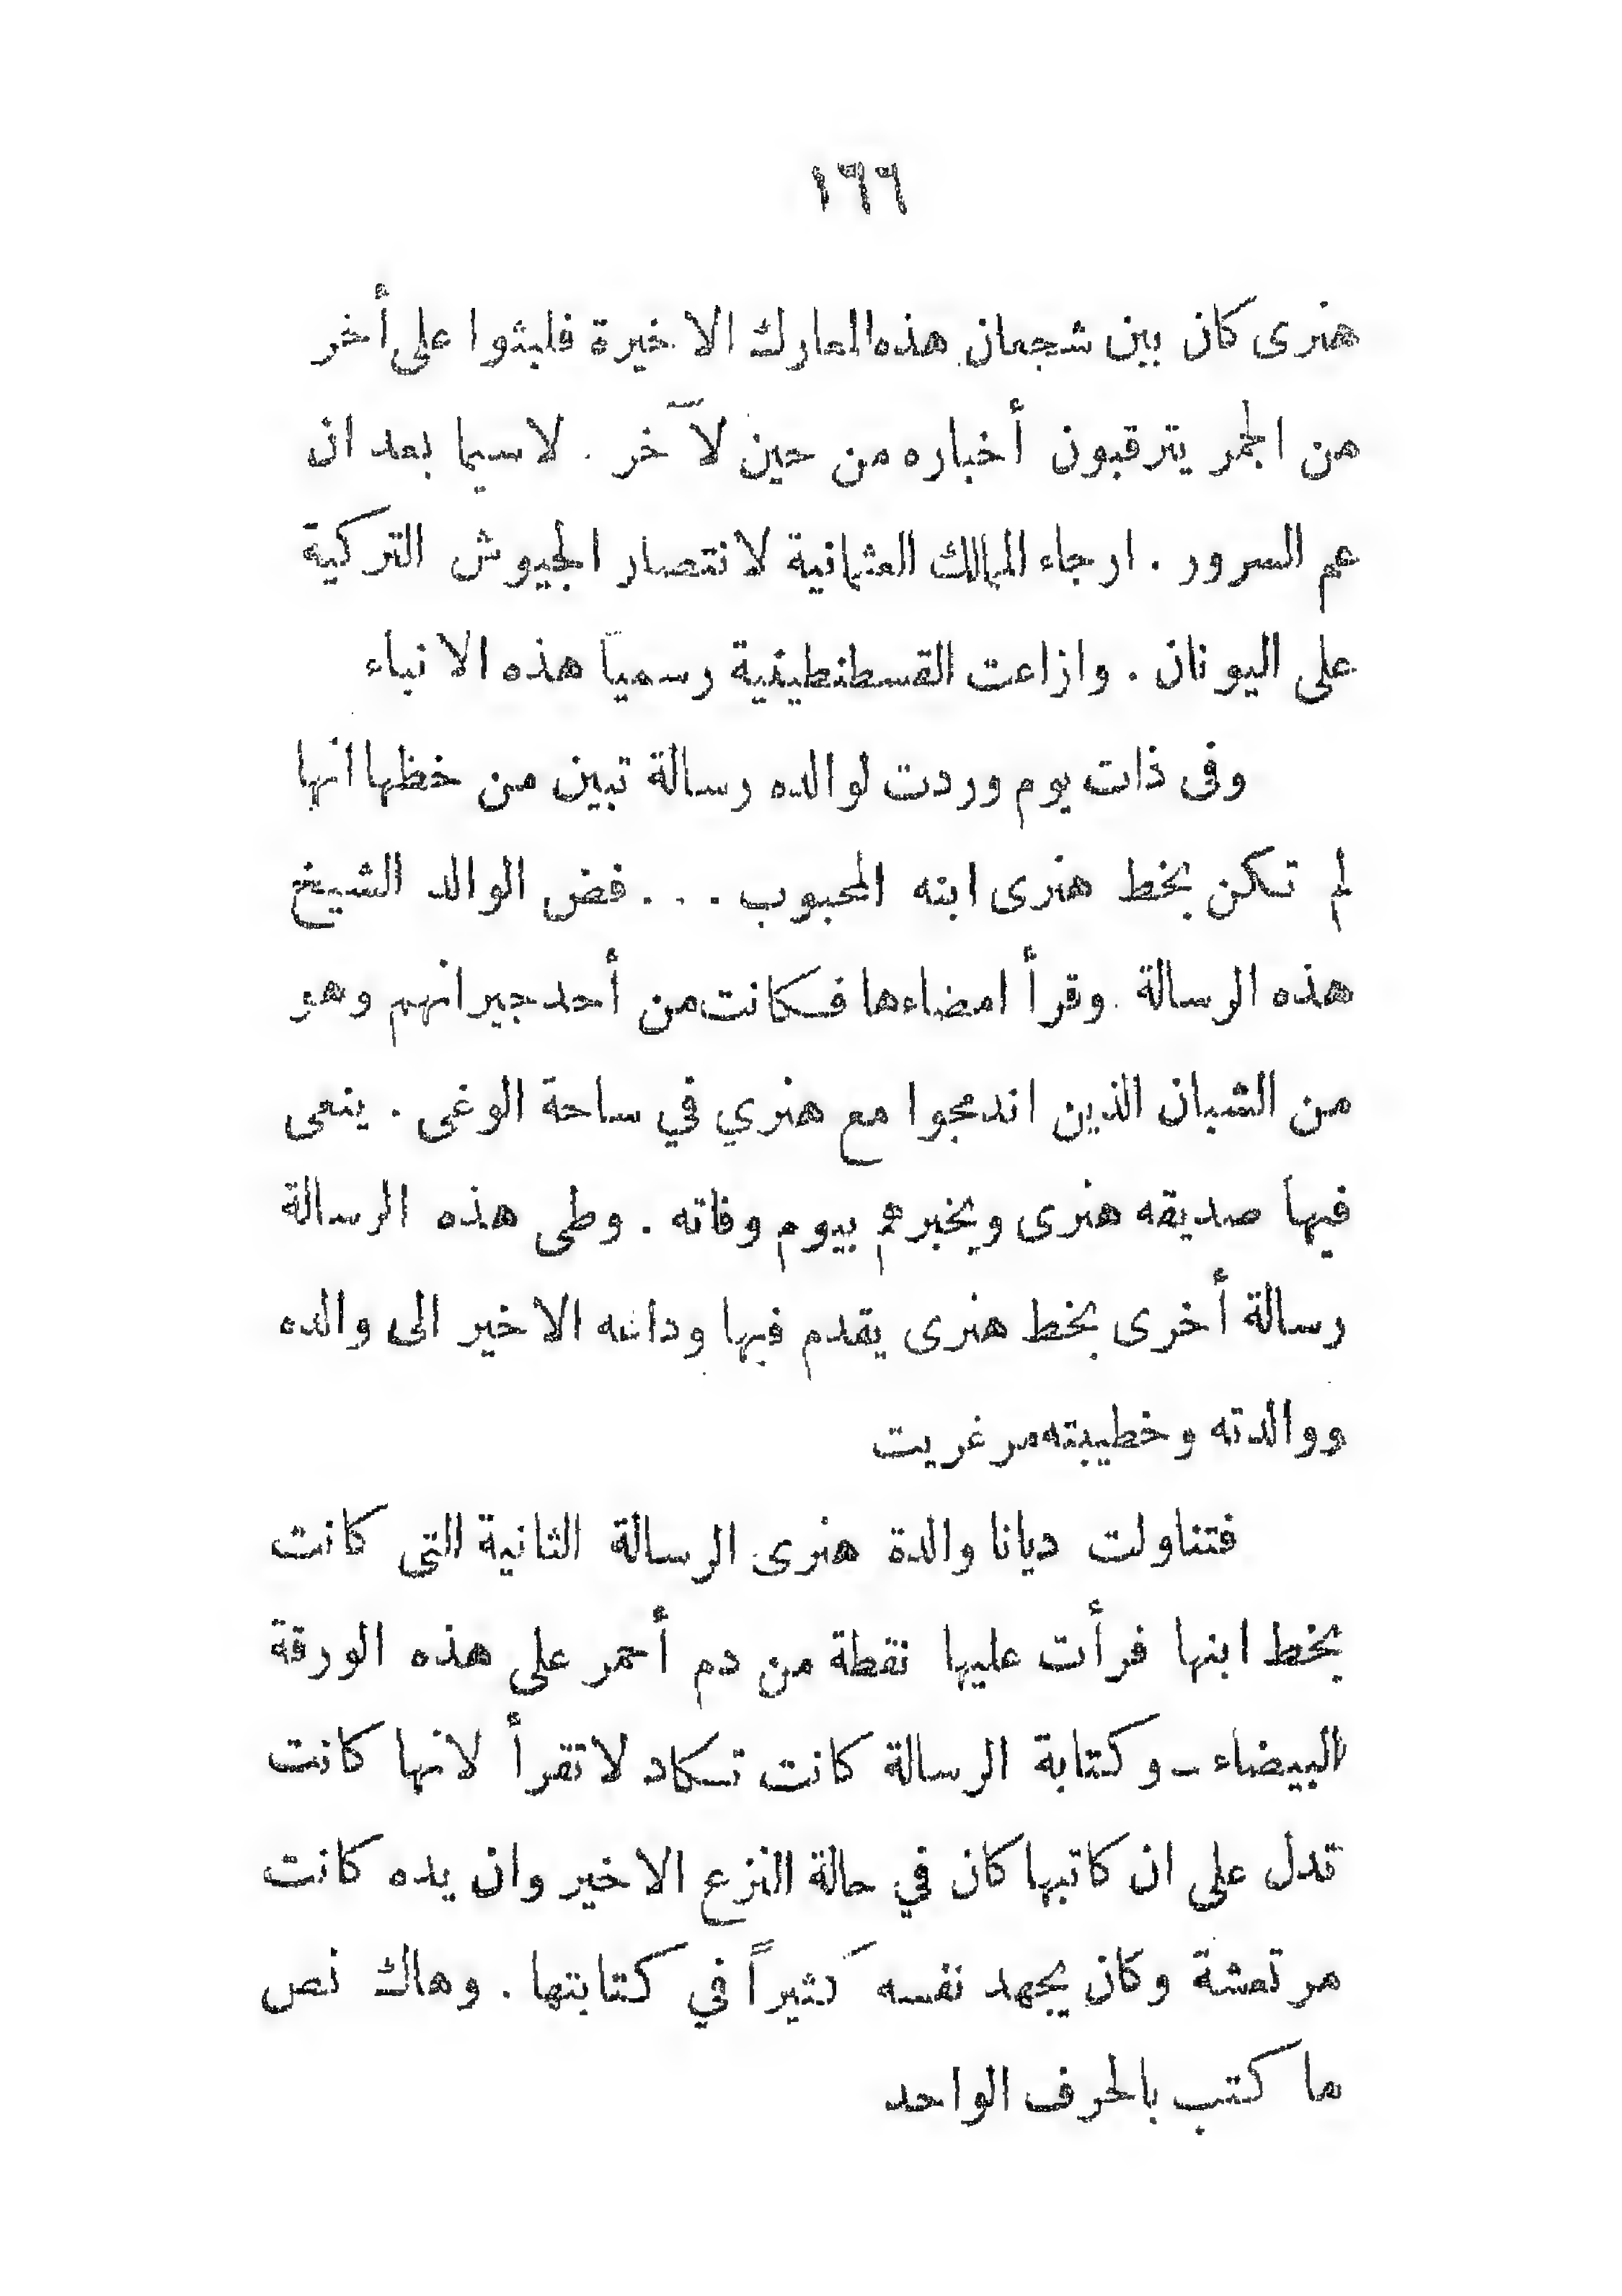 ١٦٦
هنرى كان بين شجعان هذه المعارك الاخيرة فلبثوا على أخر
من الجمر يترقبون أخباره من حين لآخر . لاسيما بعد ان
عم السرور . ارجاء الممالك العثمانية لانتصار الجيوش التركية
على اليونان . وازاعت القسطنطينية رسمياً هذه الانباء
وفى ذات يوم وردت لوالده رسالة تبين من خظها انها
لم تكن بخط هنرى ابنه المحبوب . . . فض الوالد الشيخ
هذه الرسالة . وقرأ امضاءها فكانت من أحد جيرانهم وهو
من الشبان الذين اندمجوا مع هنري في ساحة الوغى . ينعى
فيها صديقه هنرى ويخبرهم بيوم وفاته . وطى هذه الرسالة
رسالة أخرى بخط هنرى يقدم فيها وداعه الاخير الى والده
ووالدته وخطيبته مرغريت
فتناولت ديانا والدة هنرى الرسالة الثانية التى كانت
بخط ابنها فرأت عليها نقطة من دم أحمر على هذه الورقة
البيضاء - وكتابة الرسالة كانت تكاد لا تقرأ لانها كانت
تدل على ان كاتبها كان في حالة النزع الاخير وان يده كانت
مرتعشة وكان يجهد نفسه كثيراً في كتابتها . وهاك نص
ما كتب بالحرف الواحد